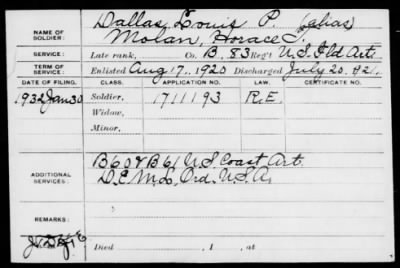 Dallas, Louis P. (alias)
NAME OF SOLDIER: Molan, Horace J.
SERVICE: Late rank, Co. B, 83 Reg't U.S. Fld Art.
TERM OF SERVICE: Enlisted Aug 17, 1920 Discharged July 20, 1921.
DATE OF FILING. CLASS. APPLICATION NO. LAW. CERTIFICATE NO.
1932 Jan 30 Soldier, 1711193 R.E.
Widow,
Minor,
ADDITIONAL SERVICES: B 60 & B 61 U.S. Coast Art.
D.E.M.L., Ord. U.S.A.
REMARKS:
Died , 1 , at